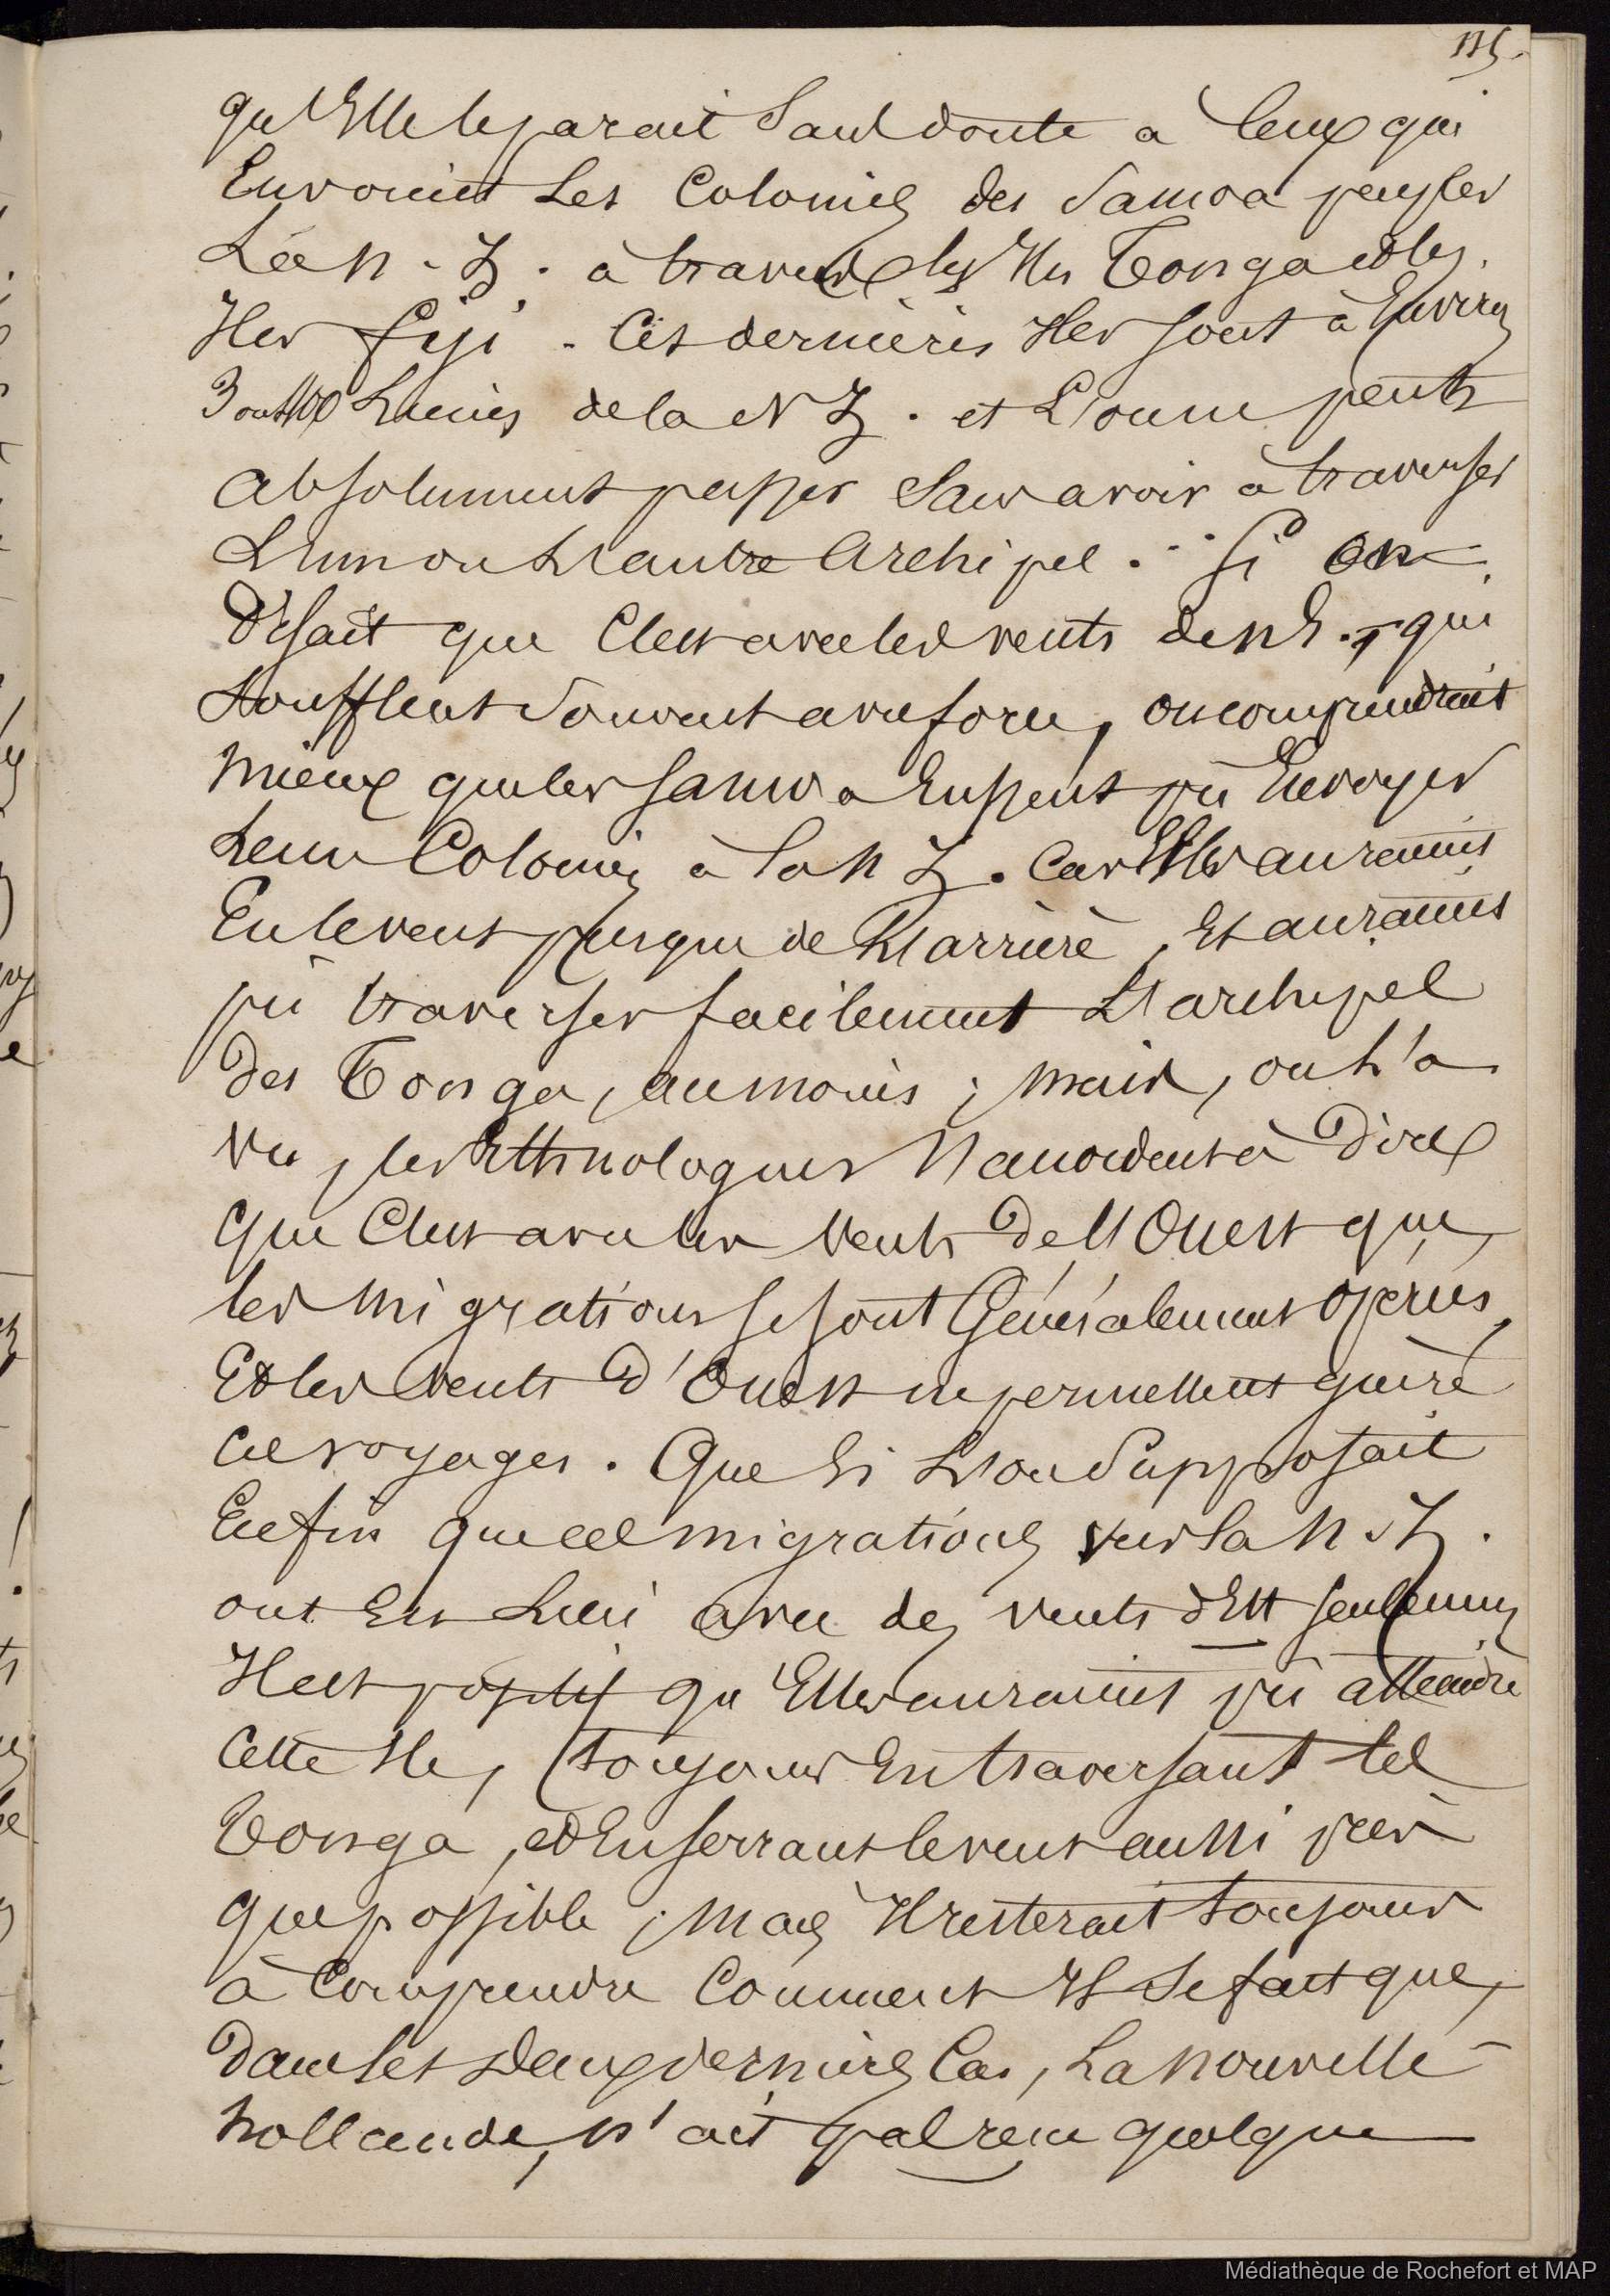 qu'Elle le parait sans doute à ceux qui
Envoient les Colonies des Samoa peupler
La N. Z. à travers les Iles Tonga et les
Iles fiji. Ces dernières Iles sont à Environ
3 ou 400 Lieues de la N Z. et L'on ne peut
absolument passer sans avoir à traverser
L'un ou L'autre Archipel. Si on
disait que C'est avec les vents de N E. qui
soufflent souvent avec force, on comprendrait
mieux que les Samoa Eussent pû Envoyer
Leurs Colonies à la N Z. Car Elles auraient
Eu le vent presque de L'arrière, Et auraient
pû traverser facilement L'archipel
des Tonga, au moins ; mais, on L'a
vu, les Ethnologues s'accordent à Dire
que C'est avec les Vents De l'Ouest que
les Migrations se sont Généralement opérées,
Et les Vents d'Ouest ne permettent guère
ces voyages. Que si L'on supposait
Enfin que ces migrations vers la N. Z.
ont Eu Lieu avec des vents d'Est seulement
Il est positif qu'Elles auraient pû atteindre
Cette Ile, toujours En traversant les
Tonga, et En serrant le vent aussi près
que possible ; mais Il resterait toujours
à Comprendre Comment Il se fait que,
Dans les deux derniers Cas, La nouvelle
hollande, n'ait pas reçu quelque
Médiathèque de Rochefort et MAP